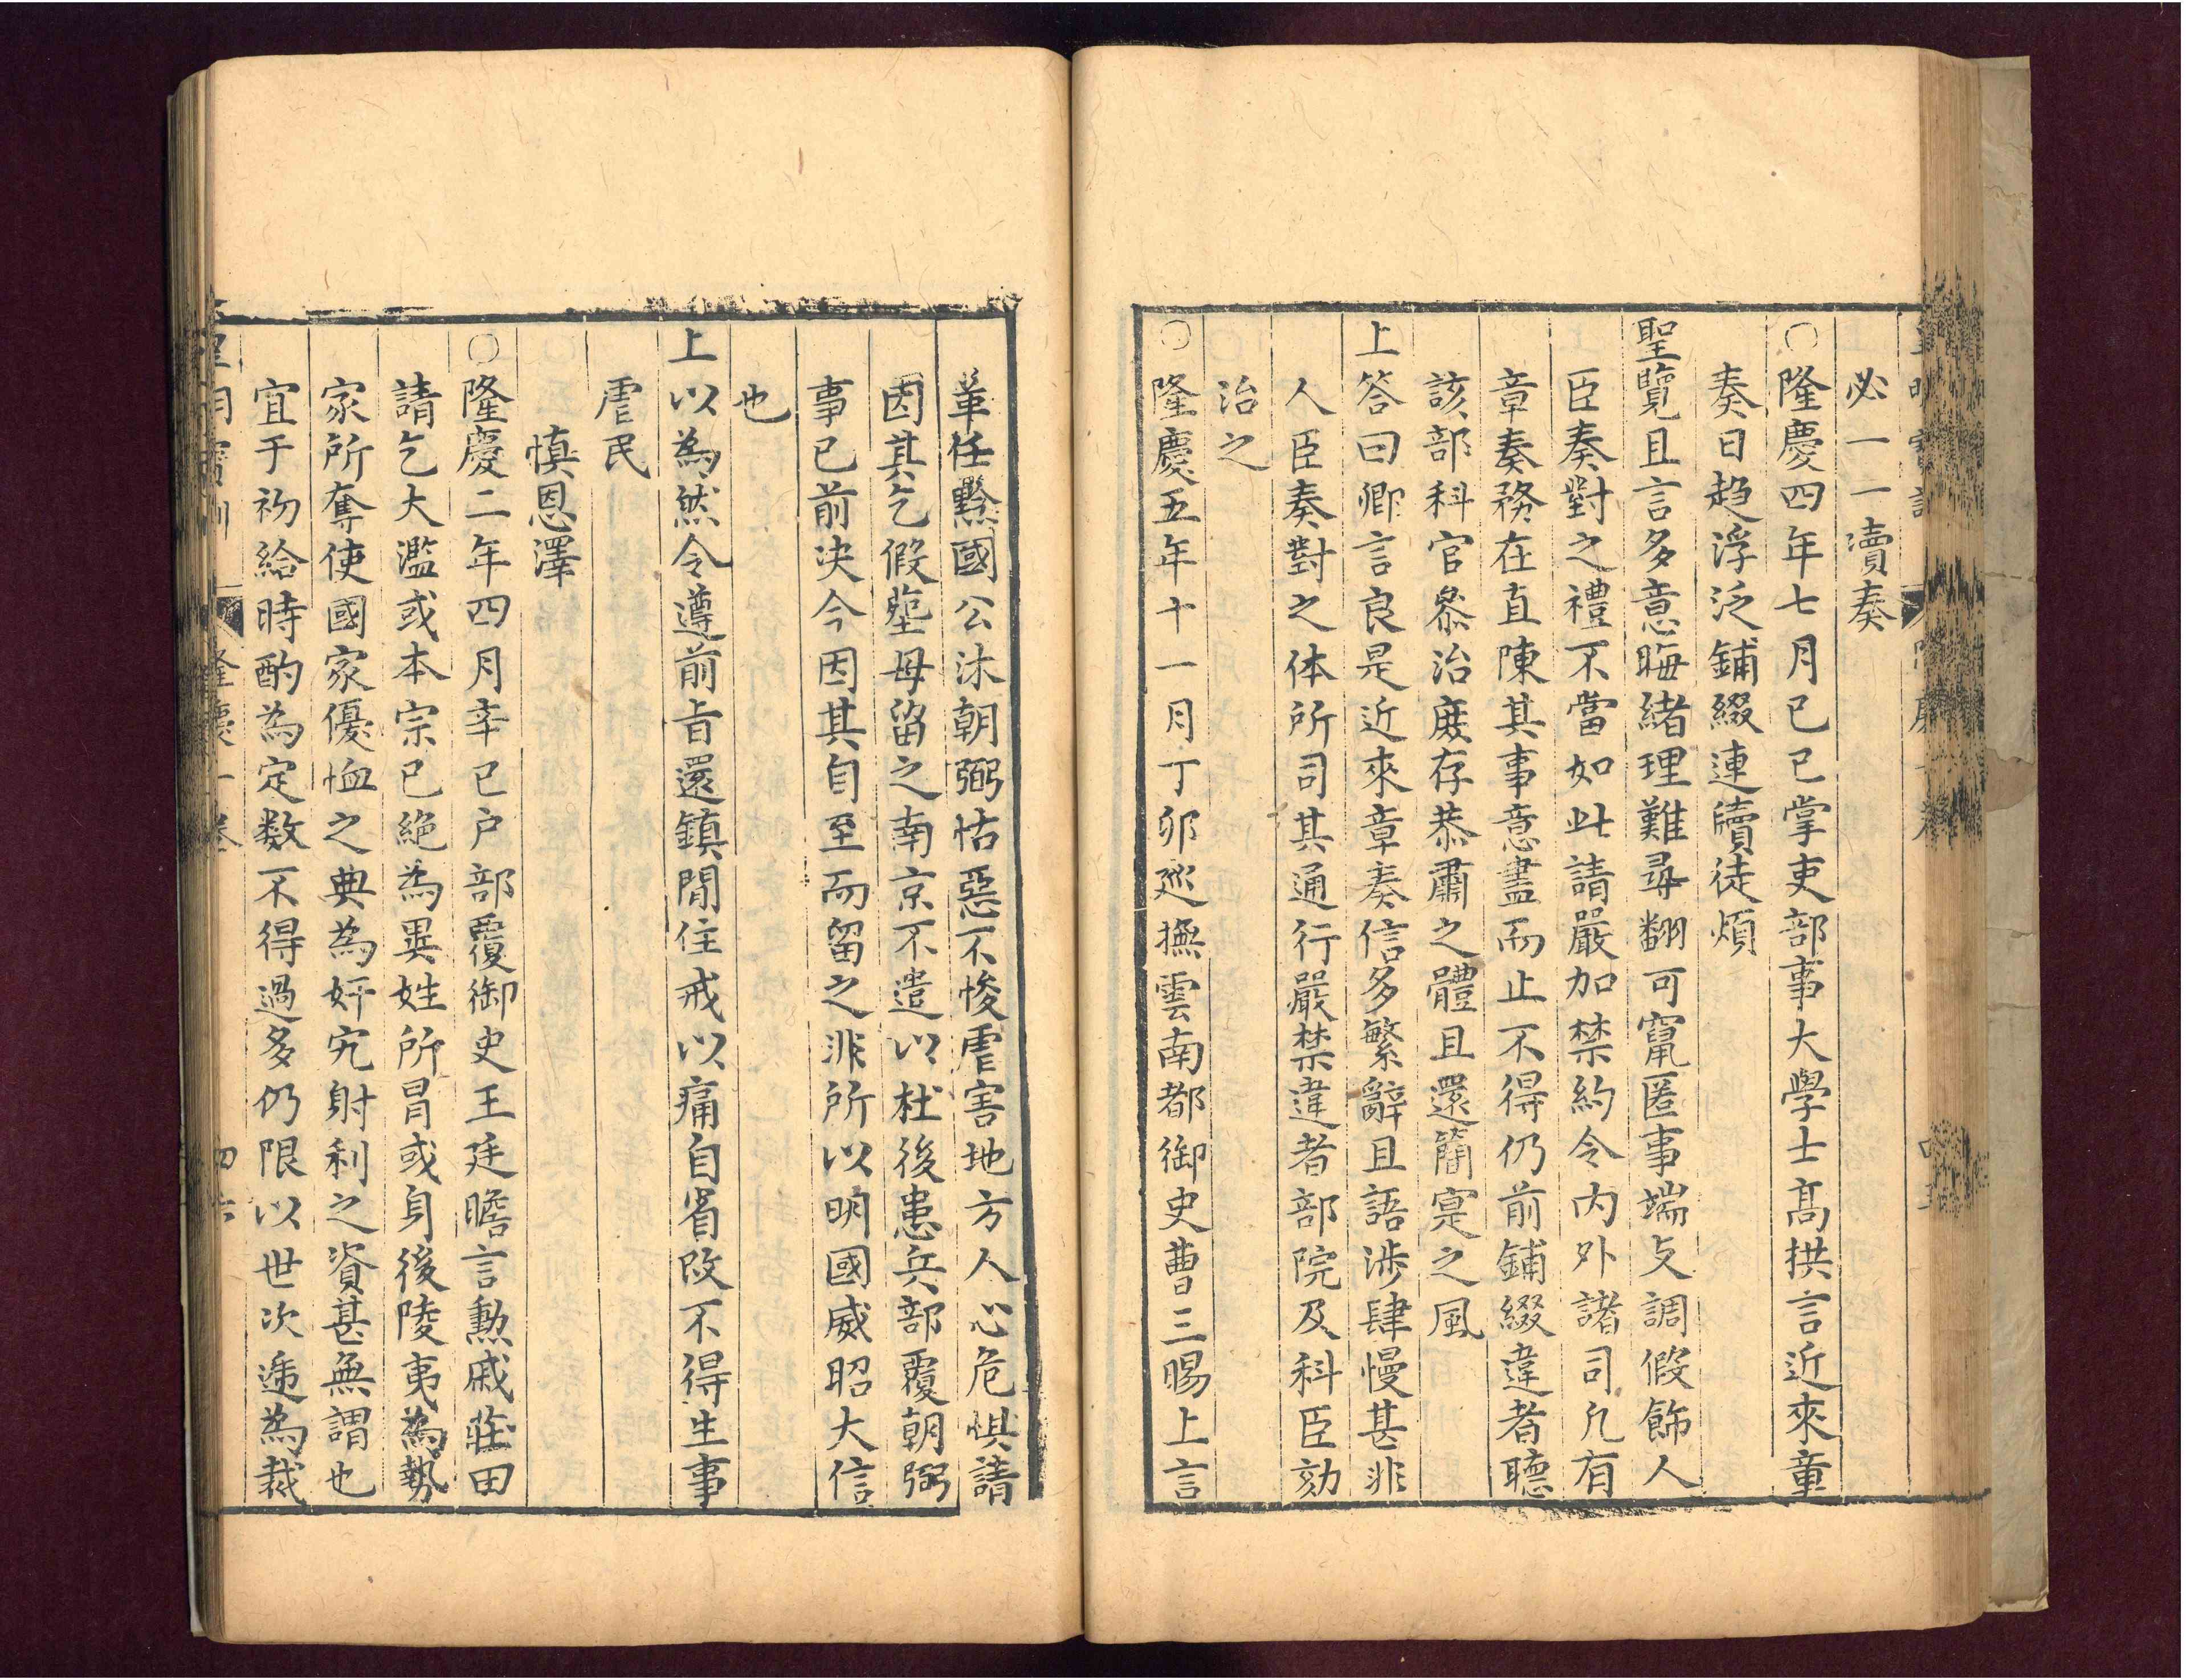 必一一瀆奏
○隆慶四年七月己巳掌吏部事大學士髙拱言近來童
奏日趋浮泛鋪綴連牘徒煩
聖覽且言多意晦緒理難尋翻可竄匿事端文調假飾人
臣奏對之禮不當如此請嚴加禁約令内外諸司凢有
章奏務在直陳其事意盡而止不得仍前鋪綴違者聽
該部科官叅治庻存恭肅之體且還簡寔之風
上答曰卿言良是近來章奏信多繁辭且語涉肆慢甚非
人臣奏對之体所司其通行嚴禁違者部院及科臣劾
治之
○隆慶五年十一月丁卯廵撫雲南都御史曹三暘上言
革任黔國公沐朝弼怙惡不悛虐害地方人心危惧請
因其乞假塟母留之南京不遣以杜後患兵部覆朝弼
事已前决今因其自至而留之非所以明國威昭大信
也
上以為然令遵前㫖還鎮閒住戒以痛自省改不得生事
虐民
慎恩澤
○隆慶二年四月辛巳户部覆御史王廷瞻言勲戚莊田
請乞大濫或本宗已絶為異姓所冐或身後陵夷為勢
家所奪使國家優恤之典為奸宄射利之資甚無謂也
宜于初給時酌為定数不得過多仍限以世次逓為裁
皇明寳訓 隆慶一卷 四六